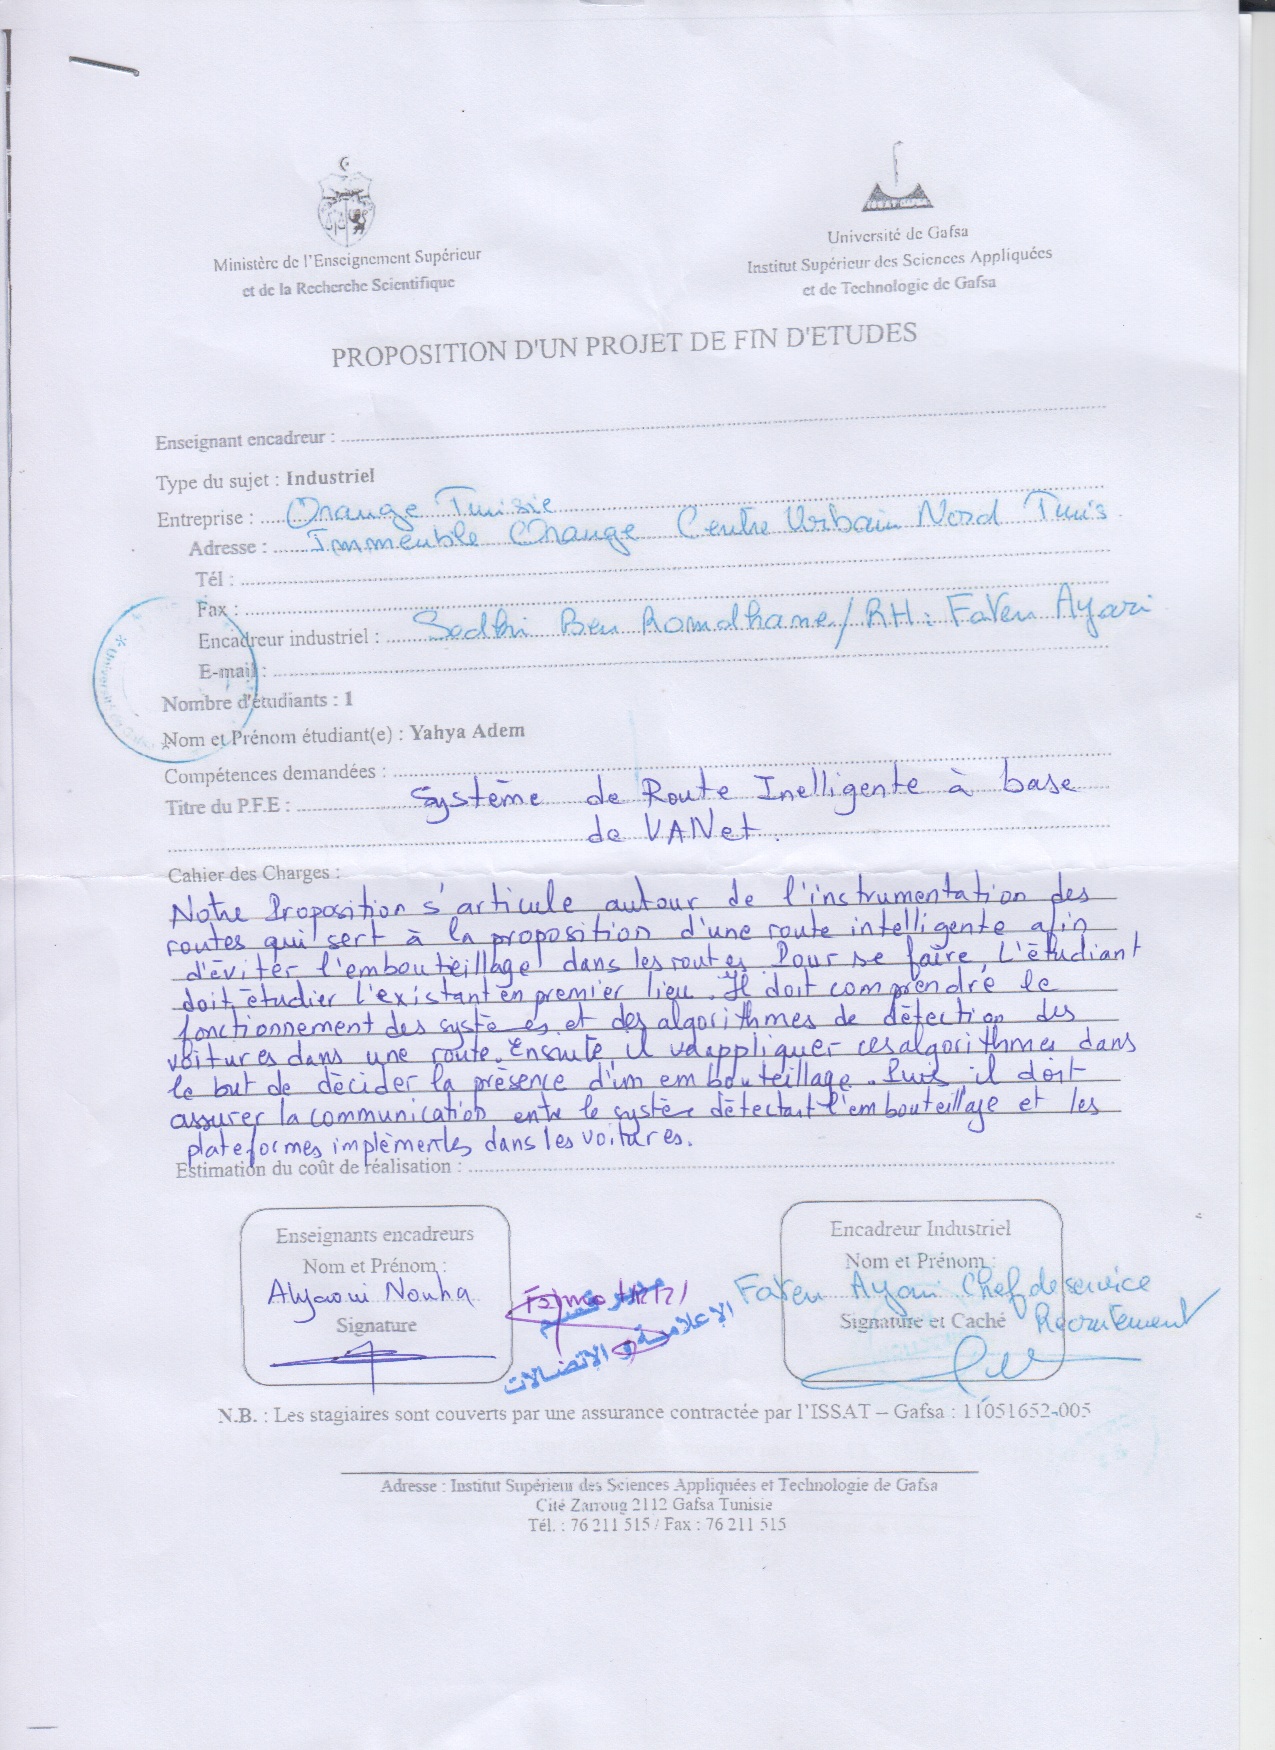 Ministère de l'Enseignement Supérieur
et de la Recherche Scientifique
ISSAT GAFSA
Université de Gafsa
Institut Supérieur des Sciences Appliquées
et de Technologie de Gafsa
PROPOSITION D'UN PROJET DE FIN D'ETUDES
Enseignant encadreur :
Type du sujet : Industriel
Entreprise : Orange Tunisie
Adresse : Immeuble Orange Centre Urbain Nord Tunis
Tél :
Fax :
Encadreur industriel : Sedki Ben Romdhane / RH : Faten Ayari
E-mail :
Nombre d'étudiants : 1
Nom et Prénom étudiant(e) : Yahya Adem
Compétences demandées :
Titre du P.F.E : Système de Route Inelligente à base
de VANet.
Cahier des Charges :
Notre Proposition s'articule autour de l'instrumentation des
routes qui sert à la proposition d'une route intelligente afin
d'éviter l'embouteillage dans les routes. Pour se faire, L'étudiant
doit étudier l'existant en premier lieu. Il doit comprendre le
fonctionnement des systèmes et des algorithmes de détection des
voitures dans une route. Ensuite, il va appliquer ces algorithmes dans
le but de décider la présence d'un embouteillage. Puis, il doit
assurer la communication entre le système détectant l'embouteillage et les
plateformes implémentés dans les voitures.
Estimation du coût de réalisation :
Enseignants encadreurs
Nom et Prénom :
Alyaoui Nouha
Signature
مدير قسم
الإعلامية و الإتصالات
Encadreur Industriel
Nom et Prénom :
Faten Ayari Chef de service
Recrutement
Signature et Caché
N.B. : Les stagiaires sont couverts par une assurance contractée par l'ISSAT – Gafsa : 11051652-005
Adresse : Institut Supérieur des Sciences Appliquées et Technologie de Gafsa
Cité Zarroug 2112 Gafsa Tunisie
Tél. : 76 211 515 / Fax : 76 211 515